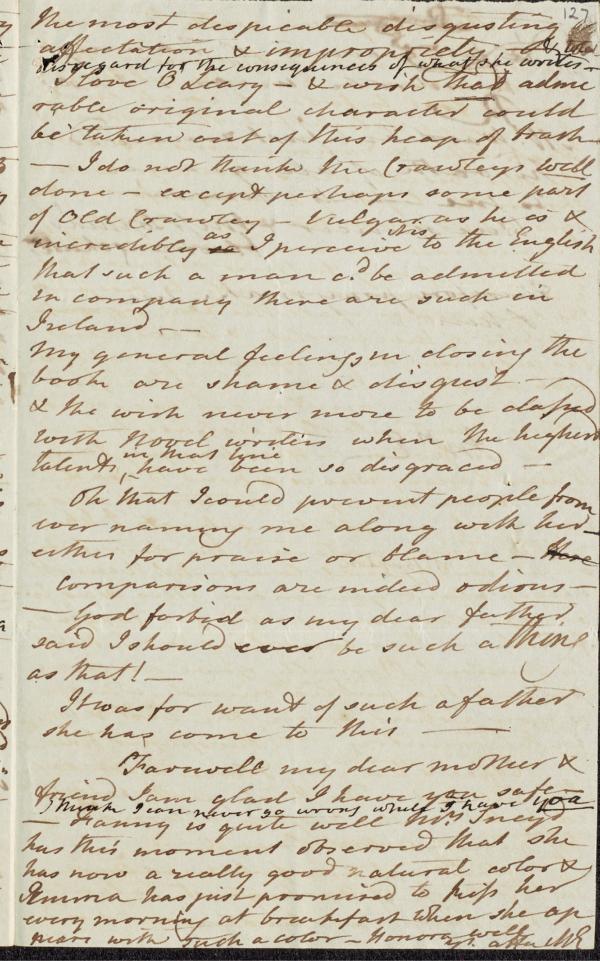 127
The most despicable disgusting
affectation & impropriety - &
disregard for the consequences of what she writes -
I love O'Leary - & wish that admi
rable original character could
be taken out of this heap of trash
- I do not think the Crawleys well
done - except perhaps some part
of Old Crawley - Vulgar as he is &
incredibly as I perceive this to the English
that such a man cd. be admitted
in company there are such in
Ireland -
My general feelings in closing the
book are shame & disgust -
& the wish never more to be classed
with Novel writers when the highest
talents in that line have been so disgraced -
Oh that I could prevent people from
ever naming me along with her -
either for praise or blame -
comparisons are indeed odious -
- God forbid as my dear father
said I should ever be such a thing
as that! -
It was for want of such a father
she has come to this -
Farewell my dear mother &
friend I am glad I have you safe -
I think I can never go wrong while I have you
- Fanny is quite well Mrs Sneyd
has this moment observed that she
has now a really good natural color &
Emma has just promised to kiss her
every morning at breakfast when she ap
pears with such a color - Honora well
ME